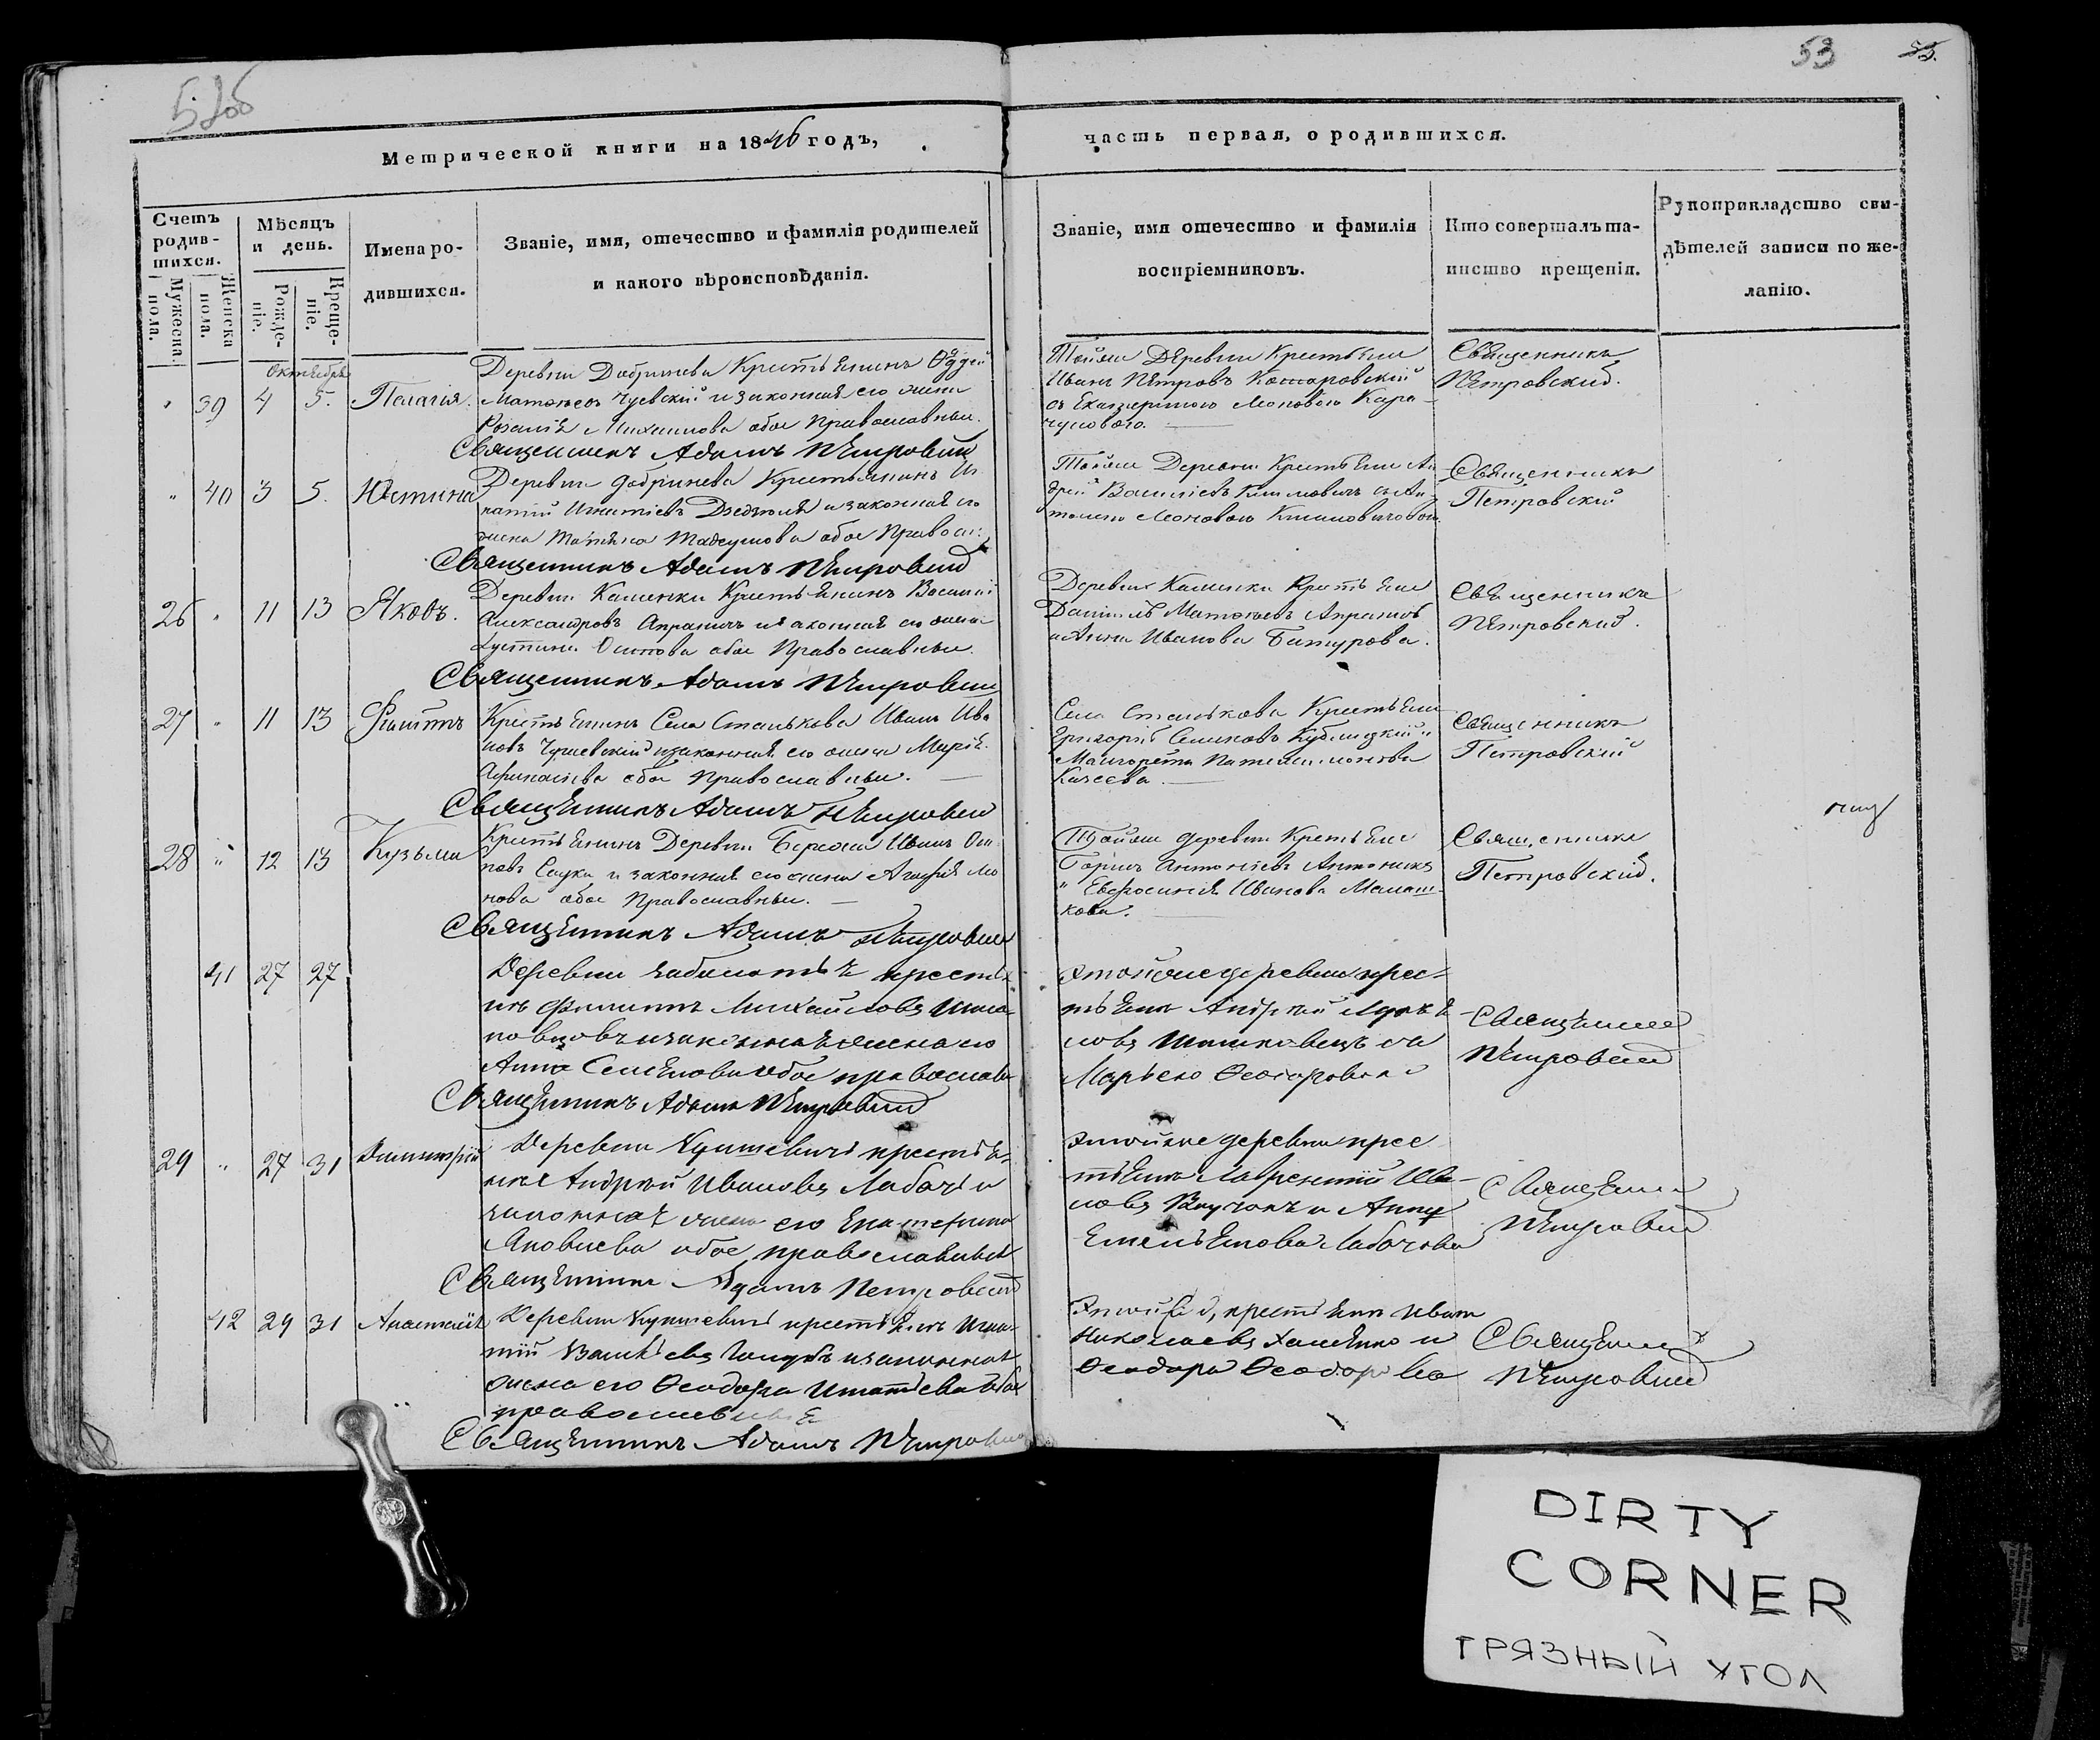 52об
53
Метрической книги на 1846 годъ,
часть первая, о родившихся.
Счетъ родив-шихся.
Мужеска пола.
Женска пола.
Мѣсяцъ и день.
Рожде-ніе.
Креще-ніе.
Имена ро-
дившихся.
Званіе, имя, отечество и фамилія родителей
и какого вѣроисповѣданія.
Званіе, имя отечество и фамилія
воспріемниковъ.
Кто совершалъ та-
инство крещенія.
Рукоприкладство сви-
дѣтелей записи по же-
ланію.
Октября
39 4 5. Пелагія.
Деревни Добринева Крестьянинъ
Матвѣевъ Чуевскій и законная его жена
Розалія Михаилова обое Православные.
Священникъ Адамъ Петровскій
Тойже Деревни Крестьяне
Иванъ Петровъ Комаровскій
съ Екатериною Леоновою Кара-
чуновою.
Священникъ
Петровскій.
40 3 5. Юстина
Деревни Добринева Крестьянинъ Иг-
натій Игнатіевъ и законная его
жена Татьяна Тадеушова обое Правосл:
Священникъ Адамъ Петровскій
Тойже Деревни Крестьяне Ан-
дрей Василіевъ Климовичъ съ Ан-
Леоновою Климовичовою.
Священникъ
Петровскій
26 11 13 Яковъ.
Деревни Каменки Крестьянинъ Василій
Александровъ Апраничъ и законная его жена
Іустина Осипова обое Православные.
Священникъ Адамъ Петровскій
Деревни Каменки Крестьяне
Даніилъ Матвѣевъ
и Анна Иванова Батурова.
Священникъ
Петровскій.
27 11 13 Филиппъ
Крестьянинъ Села Станькова Иванъ Ива-
новъ и законная его жена Марія
обое Православные.
Священникъ Адамъ Петровскій
Села Станькова Крестьяне
Григорій Семіоновъ Кублицкій и
Маргорета Пантелимонова
Качеева
Священникъ
Петровскій
28 12 13 Кузьма
Крестьянинъ Деревни Бережи Иванъ Оси-
повъ Саука и законная его жена Агафія Лео-
нова обое Православные.
Священникъ Адамъ Петровскій
Тойже деревни Крестьяне
Антоніевъ
Евфросинія Иванова Малаш-
кова.
Священникъ
Петровскій.
41 27 27
Деревни крестья-
инъ Филиппъ Михайловъ
и законная жена его
Анна Семенова обое православные
Священникъ Адамъ Петровскій
этойже деревни крес-
тьяне Андрей
съ
Марьею Ѳеодоровою
Священникъ
Петровскій
29 27 31 Димитрій
Деревни крестья-
нинъ Андрей Ивановъ Лабачъ и
законная жена его Екатерина
Яковлева обое православные
Священникъ Адамъ Петровскій
этойже деревни крес
тьяне Лаврентій Ива-
новъ и Анна
Емельянова Лабачова
Священникъ
Петровскій
42 29 31 Анастасія
Деревни крестьянинъ Игна-
тій и законная
жена его Ѳеодора Игнатіева обое
православные
Священникъ Адамъ Петровскій
крестьяне Иванъ
Николаевъ и
Ѳеодора Ѳеодорова
Священникъ
Петровскій
DIRTY
CORNER
ГРЯЗНЫЙ УГОЛ